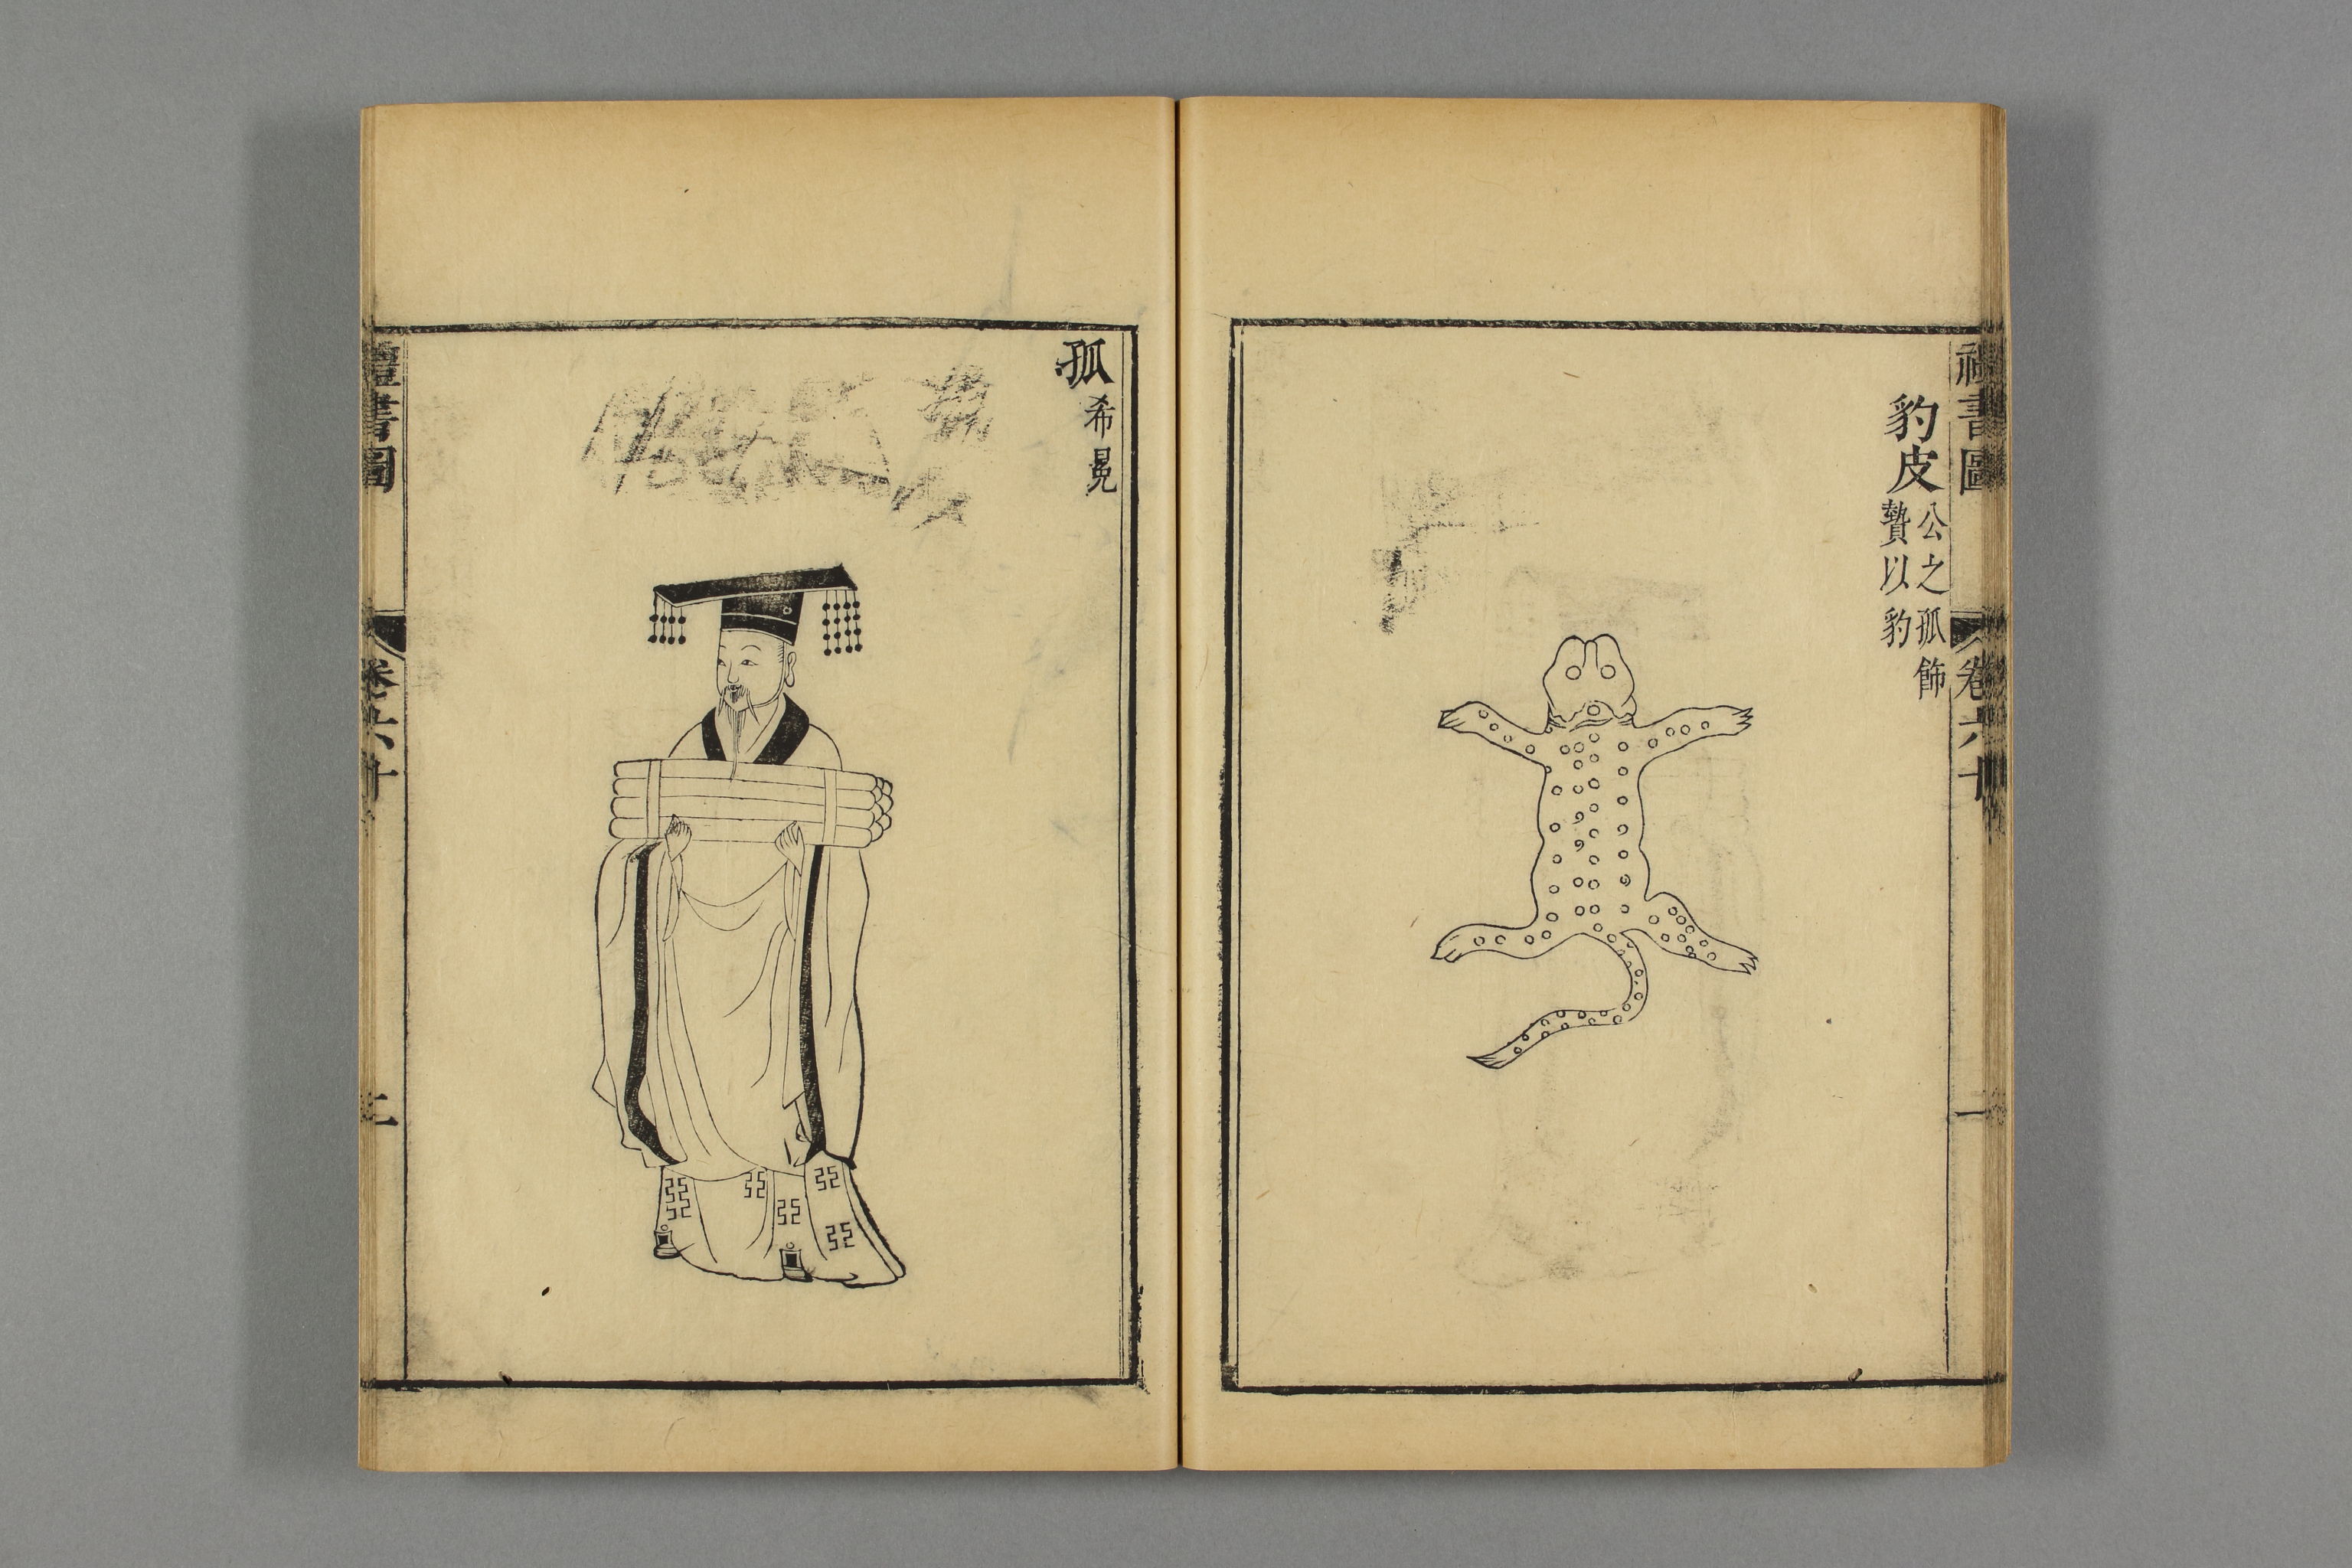 禮書圖 卷六十 一
豹皮
公之孤飾
贄以豹
孤 希冕
禮書圖 卷六十 二